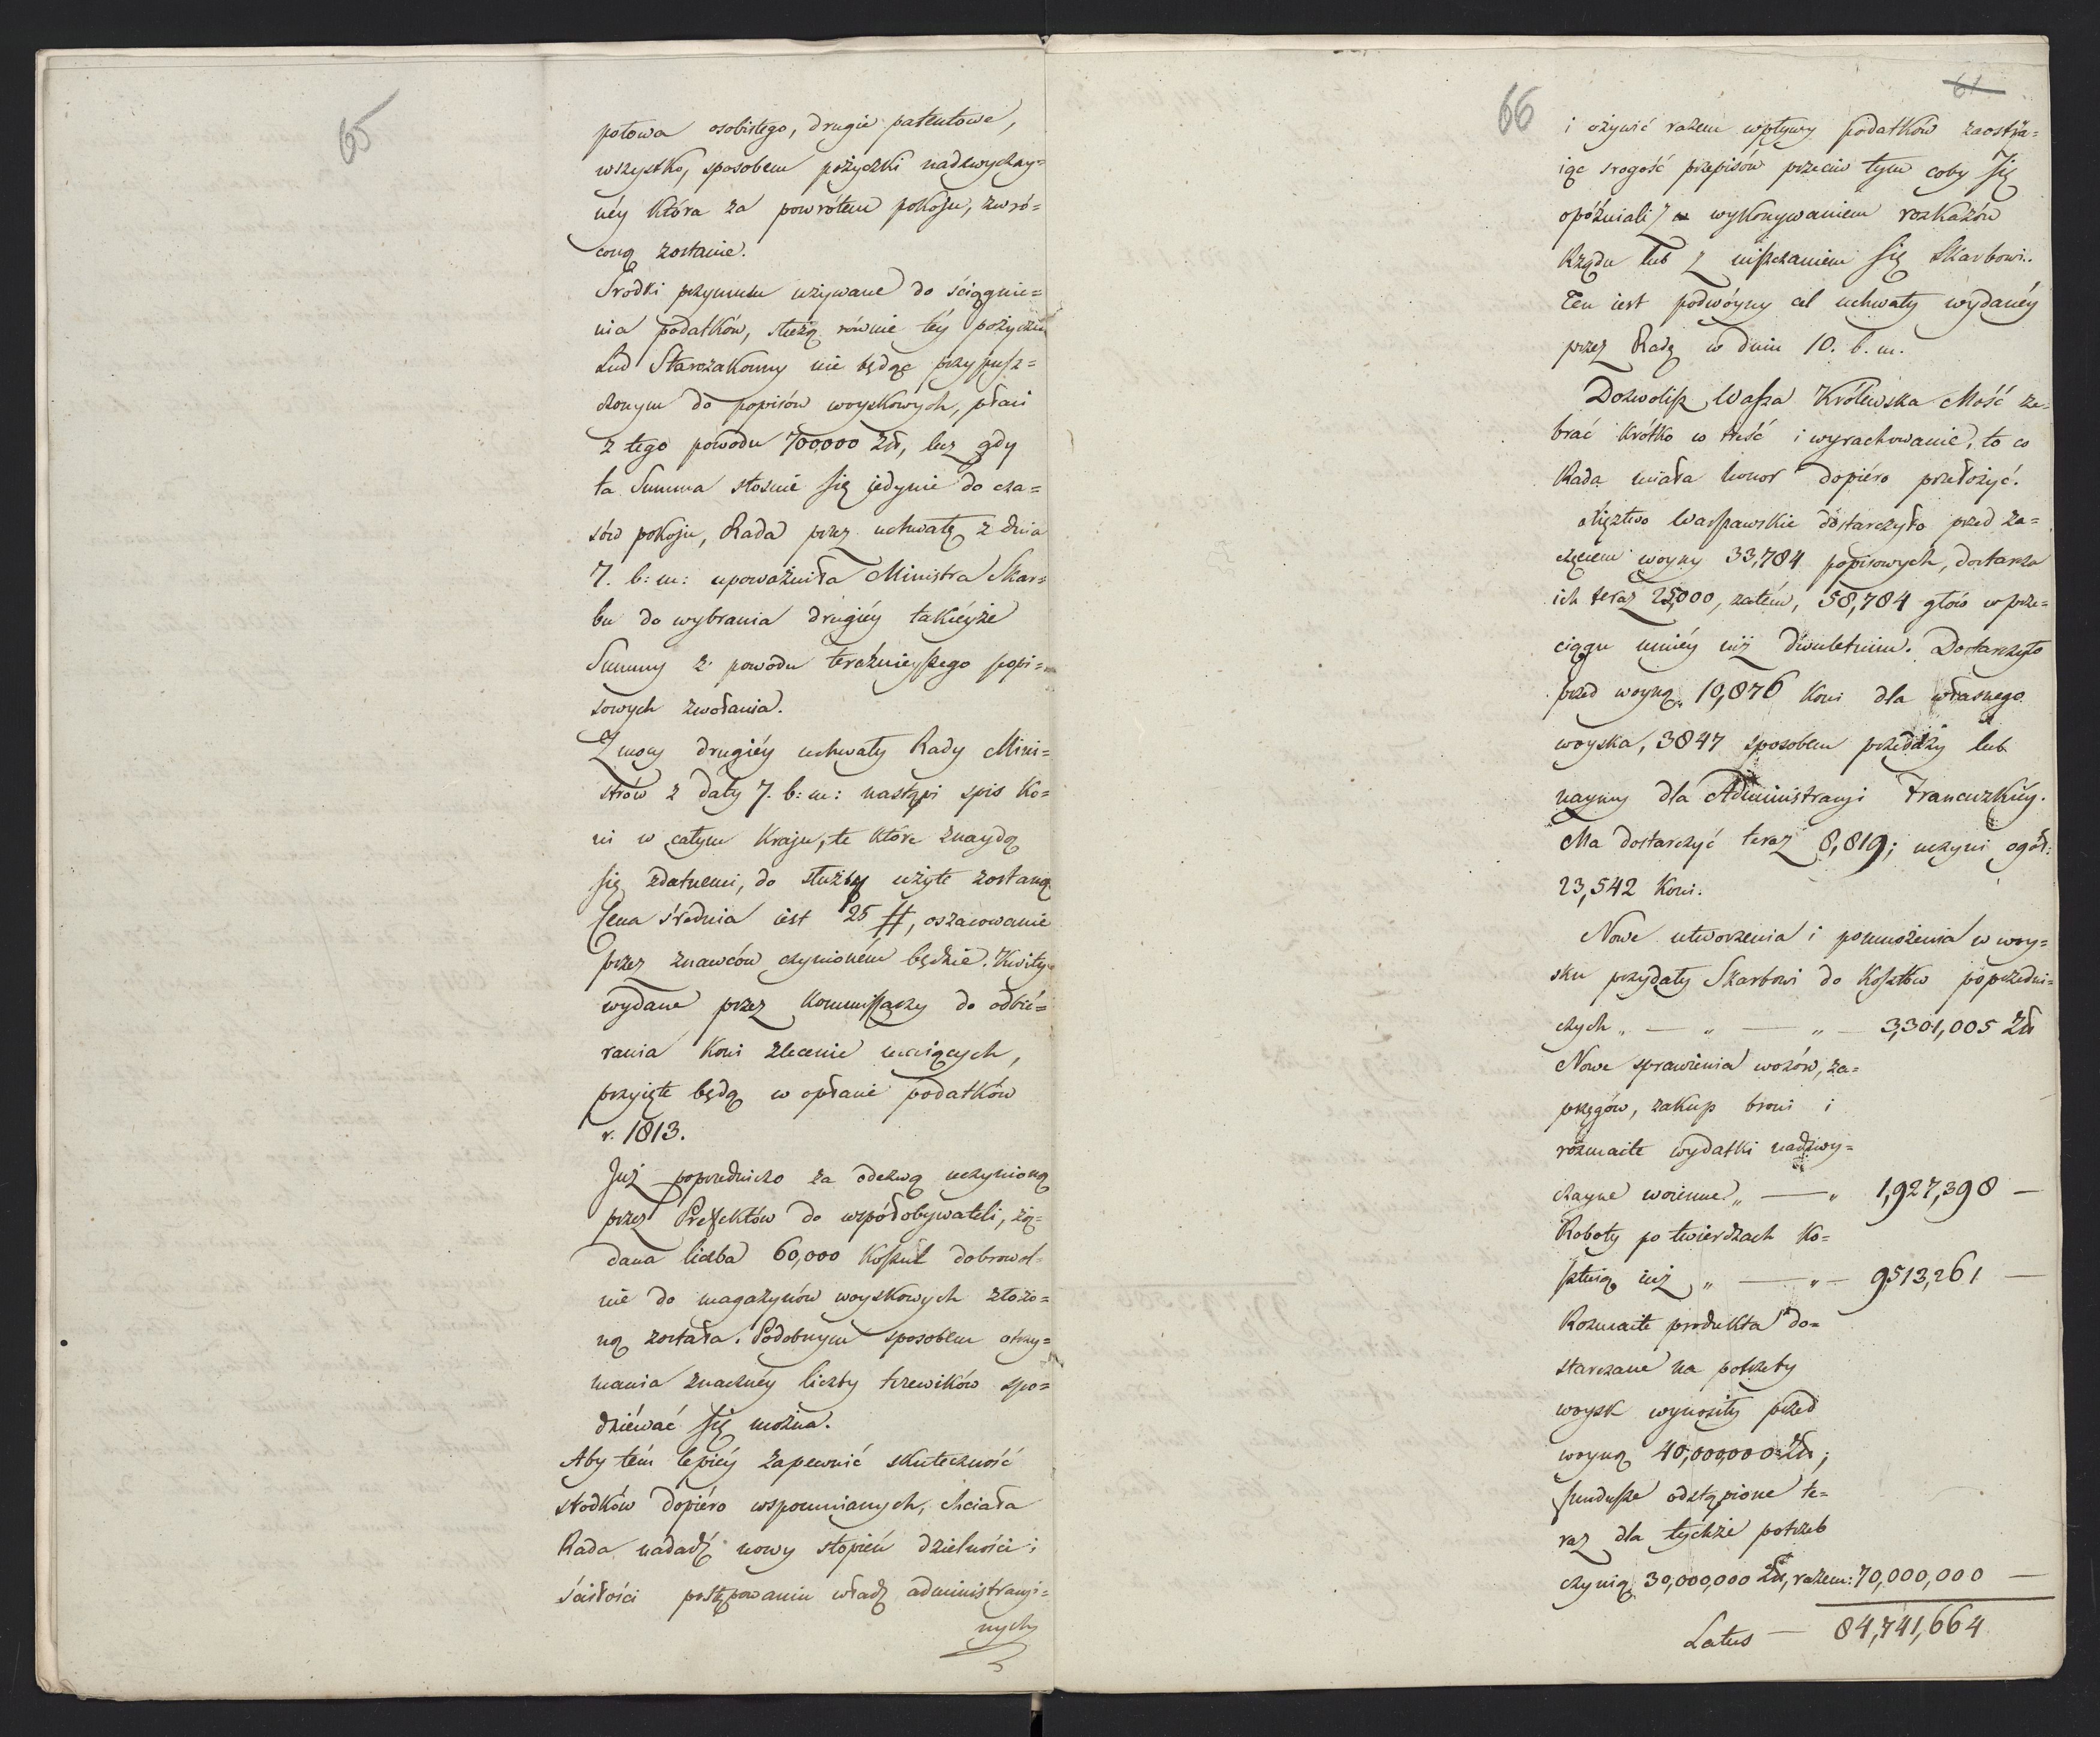 65
połowa osobistego, drugie patentowe,
wszystko, sposobem pożyczki nadzwyczay=
néy która za powrótem pokoju, zwró=
coną zostanie.
Srodki przymusu używane do ściągnie=
nia podatków, służą równie téy pożyczce
Lud Starozakonny nie będąc przypusz=
czonym do popisów woyskowych, płaci
z tego powodu 700,000 Zł, lecz gdy
ta Summa stosuie się iedynie do cza=
sów pokoju, Rada przez uchwałę z dnia
7. b: m: upoważniła Ministra Skar=
bu do wybrania drugiéy takiéyże
Summy z powodu teraźnieyszego popi=
sowych zwołania.
Z mocy drugiéy uchwały Rady Mini=
strów z daty 7. b: m: nastąpi spis ko=
ni w całym Kraju, te które znaydą
się zdatnemi, do służby użyte zostaną
Cena średnia iest 25 #, oszacowanie
przez znawców czynioném będzie. Kwity
wydane przez Kommissarzy do odbié=
rania koni zlecenie maiących,
przyięte będą w opłacie podatków
r. 1813.
Już poprzedniczo za odezwą uczynioną
przez Prefektów do współobywateli, żą=
dana liczba 60,000 koszul dobrowol=
nie do magazynów woyskowych złożo=
ną została. Podobnym sposobem otrzy=
mania znacznéy liczby trzewików spo=
dziéwać się można.
Aby tém lepiéy zapewnić skuteczność
srodków dopiéro wspomnianych, chciała
Rada nadadź nowy stopień dzielności i
ścisłości postępowaniu władz administracyi=
nych
66
61
i ożywić razem wpływy podatków zaostrza=
iąc srogość przepisów przeciw tym coby się
opóźniali z wykonywaniem rozkazów
Rządu lub z uiszczaniem się Skarbowi.
Ten iest podwóyny cel uchwały wydanéy
przez Radę w dniu 10. b. m.
Dozwolisz Wasza Królewska Mość ze=
brać krótko w treść i wyrachowanie, to co
Rada miała honor dopiéro przełożyć.
Xięztwo Warszawskie dostarczyło przed za=
częciem woyny 33,784 popisowych, dostarcza
ich teraz 25,000, zatém, 58,784 głów w prze=
ciągu mniéy niż dwuletnim. Dostarczyło
przed woyną 10,876 koni dla własnego
woyska, 3847 sposobem przedaży lub
naymu dla Administracyi Francuzkiéy.
Ma dostarczyć teraz 8,819; uczyni ogół:
23,542 koni.
Nowe utworzenia i pomnożenia w woy=
sku przydały Skarbowi do kosztów poprzedni=
czych „ — „ — „ — 3,301,005 Zł
Nowe sprawienia wozów, za=
przęgów, zakup broni i
rozmaite wydatki nadzwy=
czayne woienne „ — „ 1,927,398 —
Roboty po twierdzach ko=
sztuią już „ — „ — 9,513,261 —
Rozmaite produkta do=
starczane na potrzeby
woysk wynosiły przed
woyną 40,000,000 Zł;
fundusze odstąpione te=
raz dla tychże potrzeb
czynią 30,000,000 Zł, razem: 70,000,000 —
Latus — 84,741,664